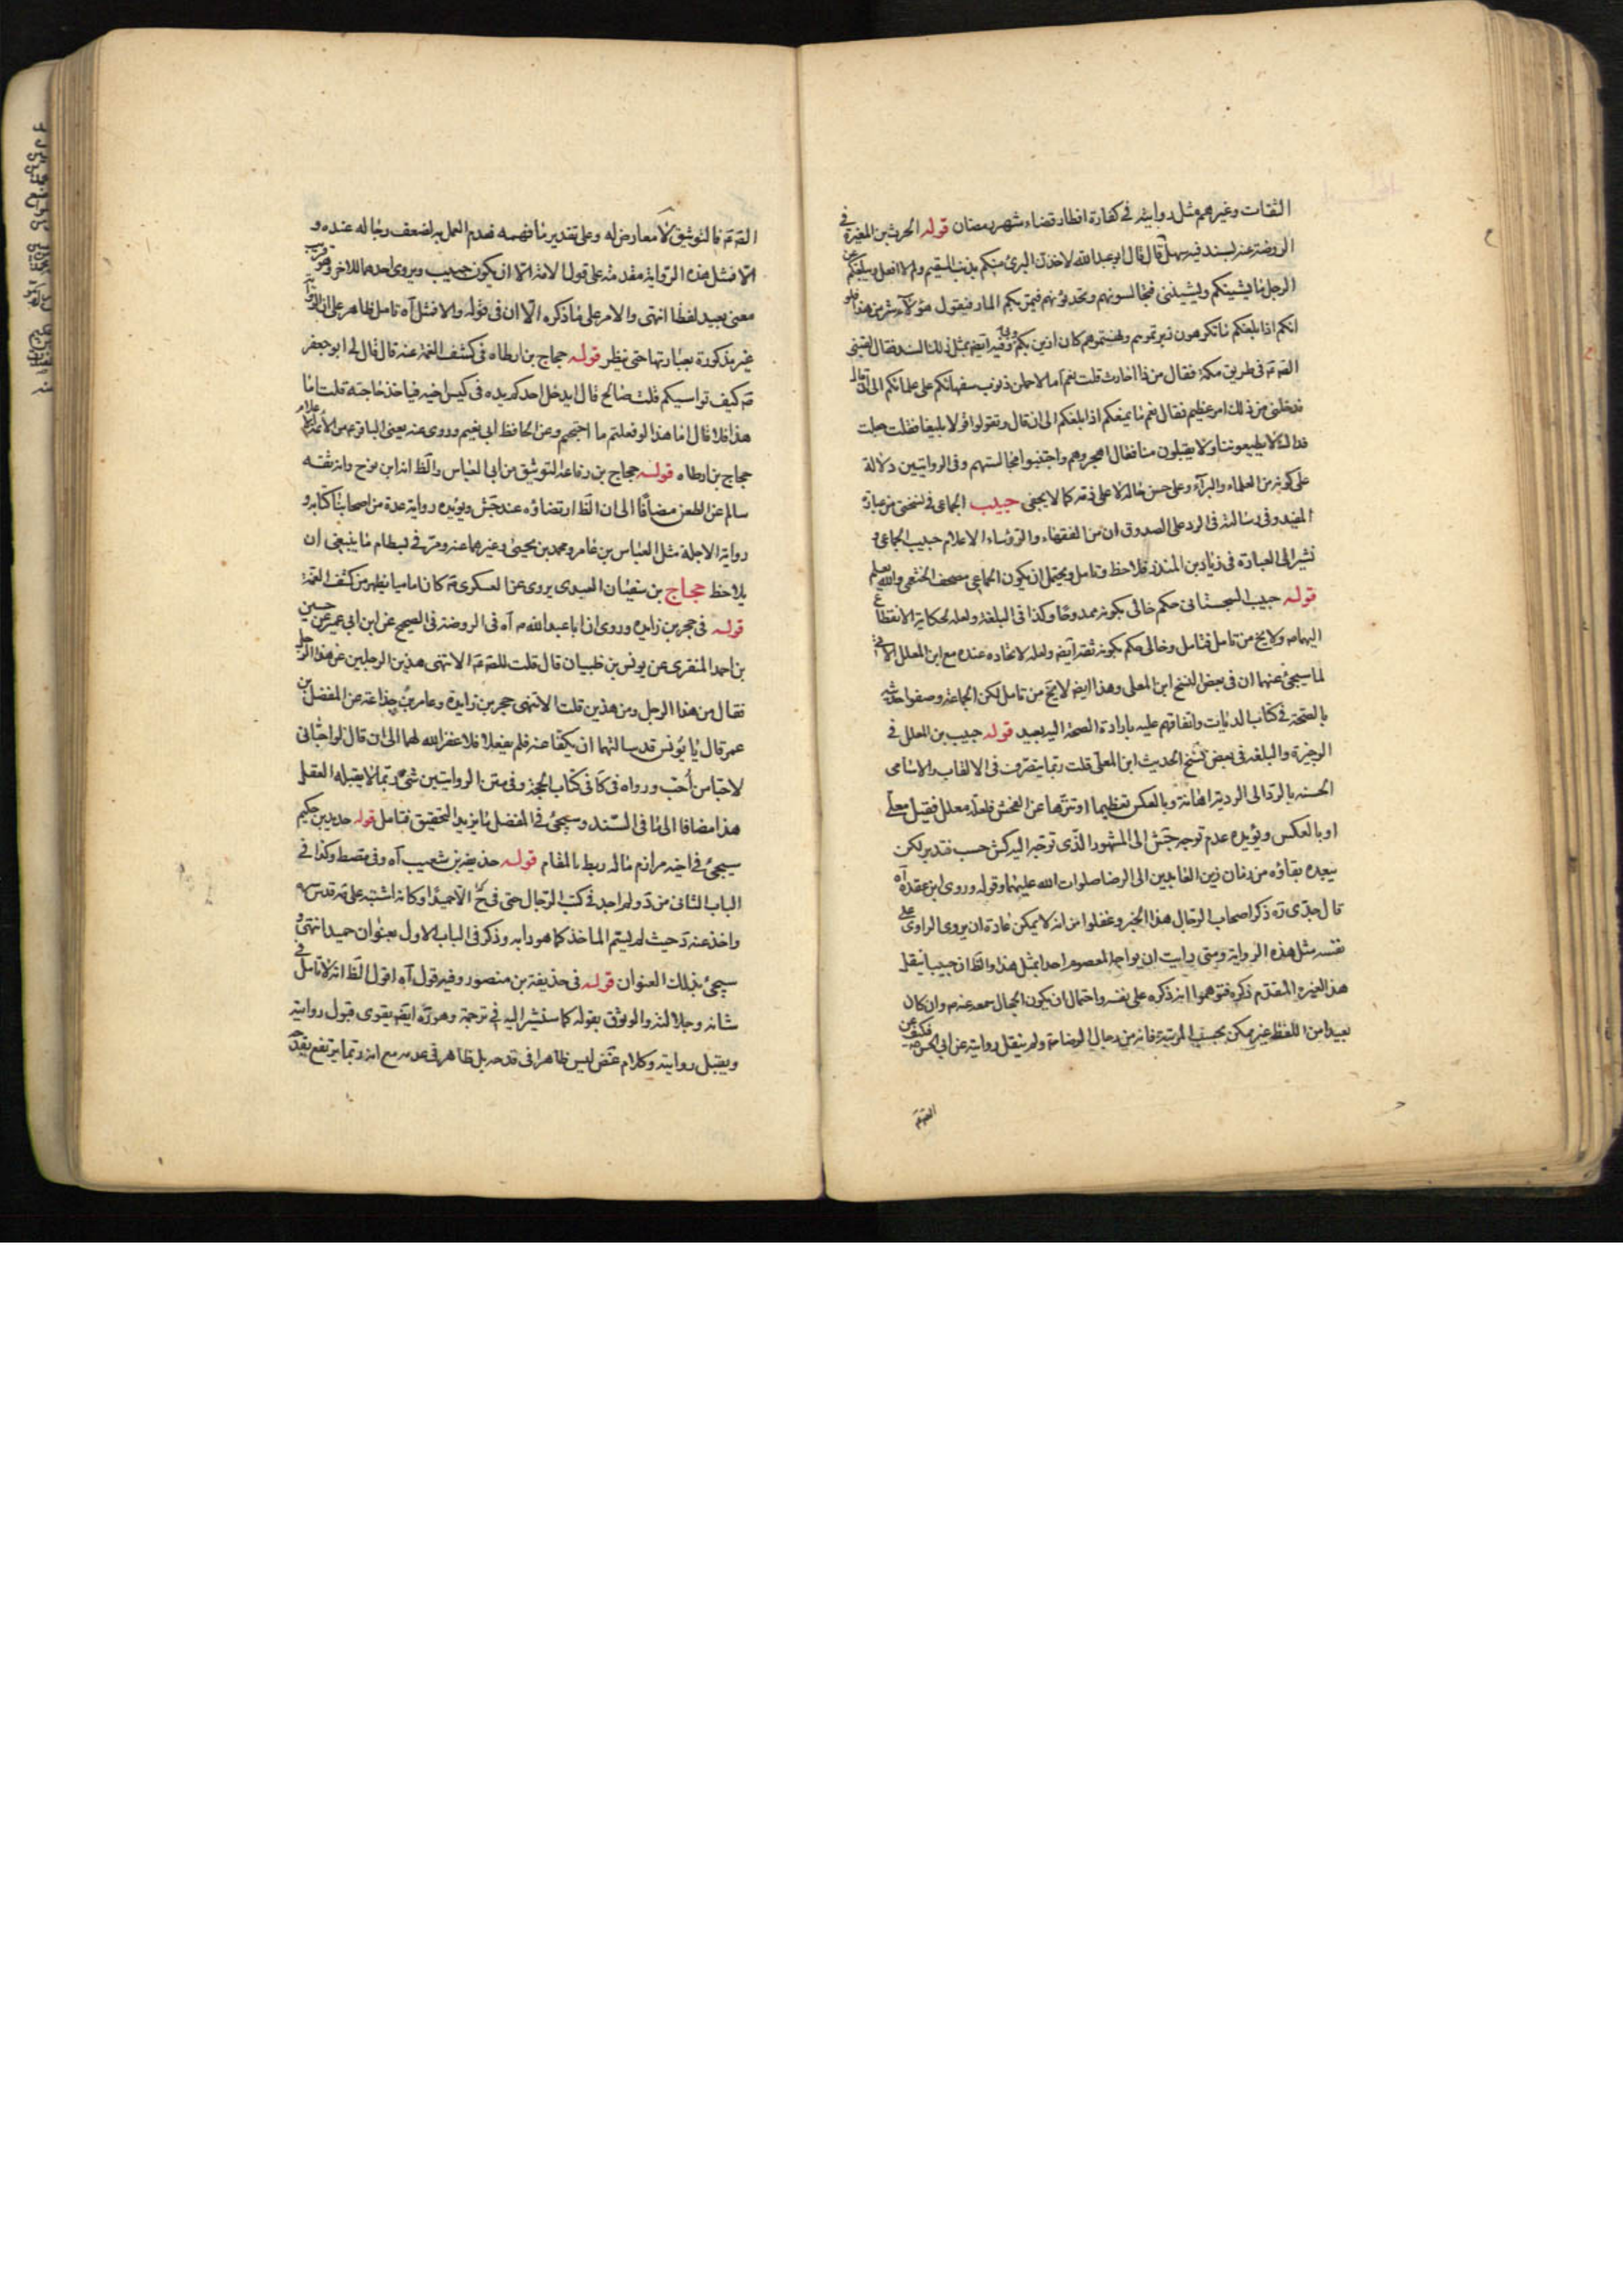 الثقات وغيرهم مثل روايته في كفارة افطار قضاء شهر رمضان قوله الحرث بن المغيرة في
الروضة عنه بسند فيه سهل قال قال ابو عبد الله لاخذن البرئ منكم بذنب السقيم ولم لا افعل ويبلغكم عن
الرجل ما يشينكم ويشينني فتجالسونهم وتحدثونهم فيمر بكم المار فيقول هؤلاء شر من هذا فلو
انكم اذا بلغكم ما تكرهون زبرتموهم ونهيتموهم كان ازين بكم وبي وفيه ايضا بمثل ذلك السند قال لقيني
الصّ ع في طريق مكة فقال من ذا احارث قلت نعم اما لاحملن ذنوب سفهائكم على علمائكم الى ان قال
فدخلني من ذلك امر عظيم فقال نعم ما يمنعكم اذا بلغكم الى ان قال وتقولوا قولا بليغا فقلت جعلت
فداك لا يطيعوننا ولا يقبلون منا فقال اهجروهم واجتنبوا مجالستهم وفي الروايتين دلالة
على كونه من العلماء والبرآء وعلى حسن حاله لا على ذمه كما لا يخفى حبيب الجماعي في نسختي من عبارة
المفيد وفي رسالته في الرد على الصدوق ان من الفقهاء والرؤساء الاعلام حبيب الجماعي و
نشير الى العبارة في زياد بن المنذر فلاحظ وتامل ويحتمل ان يكون الجماعي مصحف الخثعمي والله يعلم
قوله حبيب السجستاني حكم خالي بكونه ممدوحا وكذا في البلغة ولعله لحكاية الانقطاع
اليهما ولا يخ من تامل فتامل وخالي حكم بكونه ثقة ايضا ولعله لاتحاده عنده مع ابن المعلل الآتي
لما سيجئ عنهما ان في بعض النسخ ابن المعلى وهذا ايضا لا يخ من تامل لكن الجماعة وصفوا حديثه
بالصحة في كتاب الديات واتفاقهم عليه بارادة الصحة اليه بعيد قوله حبيب بن المعلل في
الوجيزة والبلغة في بعض نسخ الحديث ابن المعلى قلت ربما يتصرف في الالقاب والاسامي
الحسنة بالرد الى الردية اهانة وبالعكس تعظيما او تنزها عن الفحش فلعله معلل فقيل معلى
او بالعكس ويؤيده عدم توجه جش الى المشهور الذي توجه اليه كش حسب فتدبر لكن
يبعده بقاؤه من زمان زين العابدين الى الرضا صلوات الله عليهما وقوله وروى ابن عقدة آه
قال جدي ره ذكر اصحاب الرجال هذا الخبر وغفلوا من انه لا يمكن عادة ان يروى الراوي على
نفسه مثل هذه الرواية ومتى رايت ان يواجه المعصوم احدا بمثل هذا والظ ان حبيبا ينقل
هذا لغيره المتقدم ذكره فتوهموا انه ذكره على نفسه واحتمال ان يكون الجمال سمعه عنه م وان كان
بعيدا من اللفظ غير ممكن بحسب المرتبة فانه من رجال الرضا ع ولم ينقل روايته عن ابي الحسن ع فكيف عن
الصّ ع
الصّ ع فالتوثيق لا معارض له وعلى تقدير ما فهمه فعدم العمل به لضعف رجاله عنده و
الا فمثل هذه الرواية مقدمة على قول الائمة الا ان يكون حبيب ويروى احدهما للاخر وهو قريب
معنى بعيد لفظا انتهى والامر على ما ذكره الا ان في قوله والا فمثل آه تامل ظاهر على ان الرواية
غير مذكورة بعبارتها حتى ينظر قوله حجاج بن ارطاه في كشف الغمة عنه قال قال لي ابو جعفر
ع كيف تواسيكم قلت صالح قال ايدخل احدكم يده في كيس اخيه فياخذ حاجته قلت اما
هذا فلا قال اما هذا لو فعلتم ما احتجتم وعن الحافظ ابي نعيم وروى عنه يعني الباقر ع من الائمة الاعلام
حجاج بن ارطاه قوله حجاج بن رفاعة التوثيق من ابي العباس والظ انه ابن نوح وانه ثقة
سالم عن الطعن مضافا الى ان الظ ارتضاؤه عند جش ويؤيده رواية عدة من اصحابنا كتابه و
رواية الاجلة مثل العباس بن عامر ومحمد بن يحيى وغيرهما عنه ومر في بسطام ما ينبغي ان
يلاحظ حجاج بن سفيان العبدي يروى عن العسكري ع كان اماميا يظهر من كشف الغمة
قوله في حجر بن زايده وروى ان ابا عبد الله م آه في الروضة في الصحيح عن ابن ابي عمير عن حسين
بن احمد المنقري عن يونس بن ظبيان قال قلت للصّ ع الا تنهى هذين الرجلين عن هذا الرجل
فقال من هذا الرجل ومن هذين قلت الا تنهى حجر بن زايدة وعامر بن جذاعة عن المفضل بن
عمر قال يا يونس قد سالتهما ان يكفا عنه فلم يفعلا فلا غفر الله لهما الى ان قال لو احباني
لاحبا من أحب ورواه في كا في كتاب الحجة وفي متن الروايتين شئ ربما لا يقبله العقل
هذا مضافا الى ما في السند وسيجئ في المفضل ما يزيد التحقيق فتامل قوله حديد بن حكيم
سيجئ في اخيه مرازم ما له ربط بالمقام قوله حذيفة بن شعيب آه وفي مصط وكذا في
الباب الثاني من د ولم اجد في كتب الرجال حتى في صح الا حميدا وكانه اشتبه على مه قدس سره
واخذ عنه د حيث لم يسم الماخذ كما هو دابه وذكر في الباب الاول بعنوان حميد انتهى و
سيجئ بذلك العنوان قوله في حذيفة بن منصور وفيه قول آه اقول الظ انه لا تامل في
شانه وجلالته والوثوق بقوله كما سنشير اليه في ترجمة وهو ره ايضا يقوى قبول روايته
ويقبل روايته وكلام غض ليس ظاهرا في قدحه بل ظاهر في عدمه مع انه ربما يرتفع بقدحه